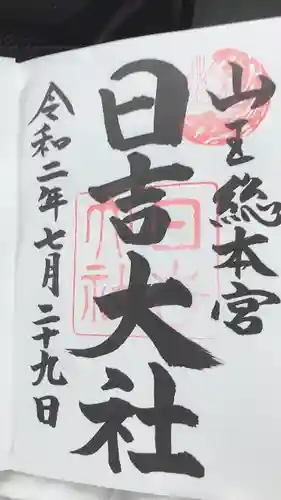 山王総本宮
日吉大社
令和二年七月二十九日
日吉大社